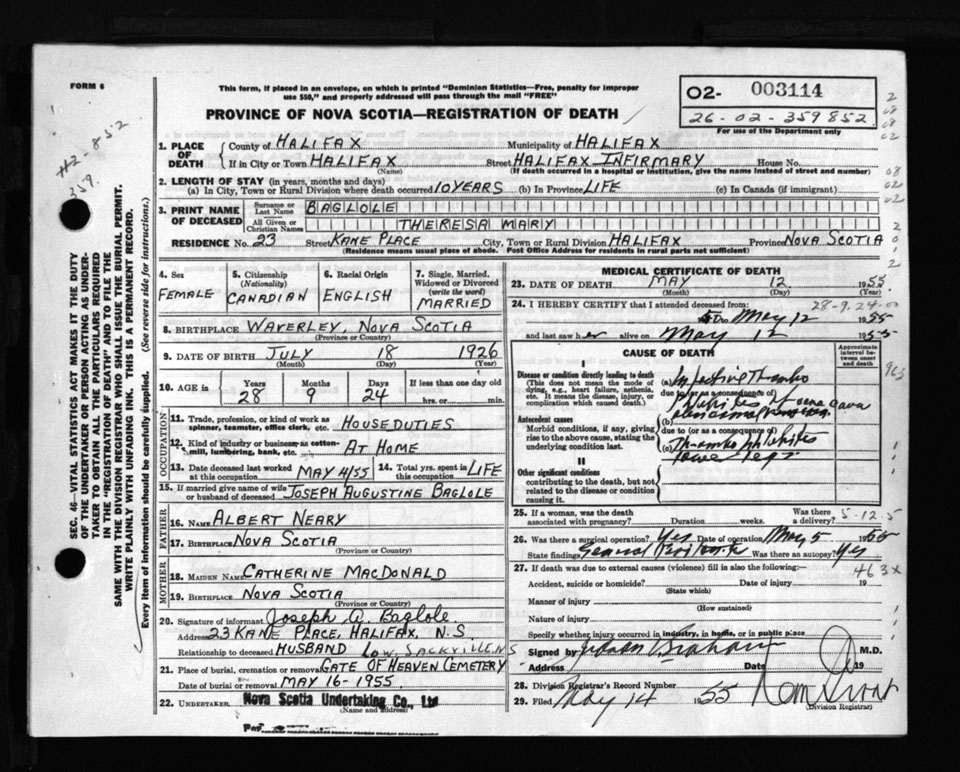 FORM 6
This form, if placed in an envelope, on which is printed "Dominion Statistics—Free, penalty for improper
use $50," and properly addressed will pass through the mail "FREE"
PROVINCE OF NOVA SCOTIA—REGISTRATION OF DEATH
02- 003114
26-02-359852
For use of the Department only
H2-852
359.
SEC. 46—VITAL STATISTICS ACT MAKES IT THE DUTY
OF THE UNDERTAKER OR PERSON ACTING AS UNDER-
TAKER TO OBTAIN ALL THE PARTICULARS REQUIRED
IN THE "REGISTRATION OF DEATH" AND TO FILE THE
SAME WITH THE DIVISION REGISTRAR WHO SHALL ISSUE THE BURIAL PERMIT.
WRITE PLAINLY WITH UNFADING INK. THIS IS A PERMANENT RECORD.
Every item of information should be carefully supplied. (See reverse side for instructions.)
1. PLACE OF DEATH County of HALIFAX Municipality of HALIFAX
If in City or Town HALIFAX (Name) Street HALIFAX INFIRMARY House No.
(If death occurred in a hospital or institution, give the name instead of street and number)
2. LENGTH OF STAY (in years, months and days)
(a) In City, Town or Rural Division where death occurred 10 YEARS (b) In Province LIFE (c) In Canada (if immigrant)
3. PRINT NAME OF DECEASED Surname or Last Name BAGLOLE
All Given or Christian Names THERESA MARY
RESIDENCE No. 23 Street KANE PLACE City, Town or Rural Division HALIFAX Province NOVA SCOTIA
(Residence means usual place of abode. Post Office Address for residents in rural parts not sufficient)
4. Sex FEMALE
5. Citizenship (Nationality) CANADIAN
6. Racial Origin ENGLISH
7. Single, Married, Widowed or Divorced (write the word) MARRIED
8. BIRTHPLACE WAVERLEY, NOVA SCOTIA
(Province or Country)
9. DATE OF BIRTH JULY 18 1926
(Month) (Day) (Year)
10. AGE in Years 28 Months 9 Days 24 If less than one day old hrs. or min.
OCCUPATION
11. Trade, profession, or kind of work as spinner, teamster, office clerk, etc. HOUSEDUTIES
12. Kind of industry or business, as cotton-mill, lumbering, bank, etc. AT HOME
13. Date deceased last worked at this occupation MAY 4/55 14. Total yrs. spent in this occupation LIFE
15. If married give name of wife or husband of deceased JOSEPH AUGUSTINE BAGLOLE
FATHER
16. NAME ALBERT NEARY
17. BIRTHPLACE NOVA SCOTIA
(Province or Country)
MOTHER
18. MAIDEN NAME CATHERINE MACDONALD
19. BIRTHPLACE NOVA SCOTIA
(Province or Country)
20. Signature of informant Joseph A. Baglole
Address 23 KANE PLACE, HALIFAX, N.S.
Relationship to deceased HUSBAND LOW. SACKVILLE N S
21. Place of burial, cremation or removal GATE OF HEAVEN CEMETERY
Date of burial or removal MAY 16-1955.
22. UNDERTAKER Nova Scotia Undertaking Co., Ltd
(Name and address)
MEDICAL CERTIFICATE OF DEATH
23. DATE OF DEATH MAY 12 1955
(Month) (Day) (Year)
24. I HEREBY CERTIFY that I attended deceased from: 28-9.24-00
to May 12 1955
and last saw her alive on May 12 1955
CAUSE OF DEATH
Approximate interval between onset and death
I
Disease or condition directly leading to death
(This does not mean the mode of dying, e.g., heart failure, asthenia, etc. It means the disease, injury, or complication which caused death.)
(a) Infective Thrombo
due to (or as a consequence of)
phlebitis of vena cava
Antecedent causes
Morbid conditions, if any, giving rise to the above cause, stating the underlying condition last.
(b)
due to (or as a consequence of)
(c) Thrombo phlebitis
lower legs
II
Other significant conditions
contributing to the death, but not related to the disease or condition causing it.
963
25. If a woman, was the death associated with pregnancy? Duration weeks. Was there a delivery? 5-12.5
26. Was there a surgical operation? Yes Date of operation May 5 1955
State findings General Peritonitis Was there an autopsy? Yes
27. If death was due to external causes (violence) fill in also the following:— 463x
Accident, suicide or homicide? Date of injury
(State which)
Manner of injury
(How sustained)
Nature of injury
Specify whether injury occurred in industry, in home, or in public place
Signed by Graham M.D.
Address Date 19
28. Division Registrar's Record Number
29. Filed May 14 1955
(Division Registrar)